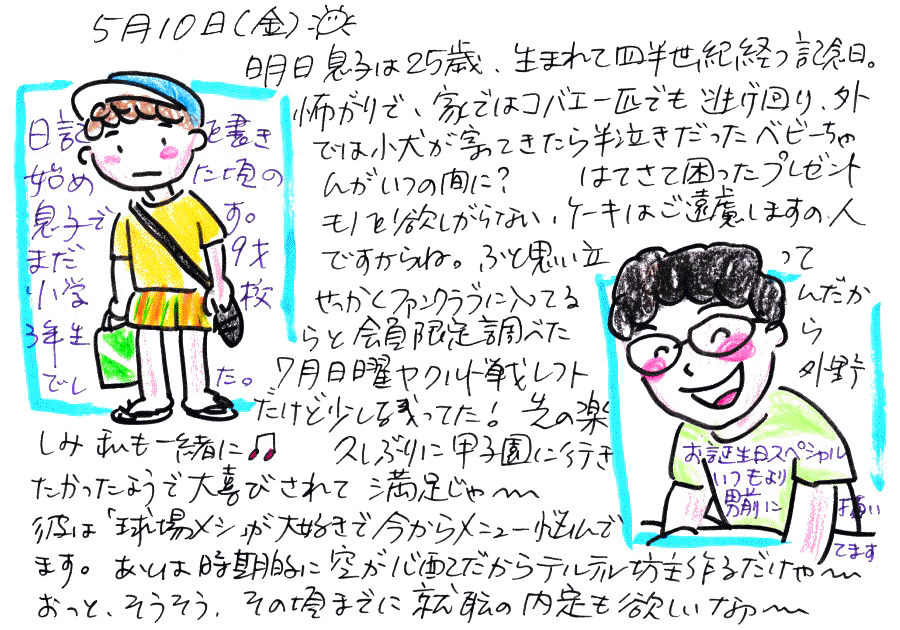 5月10日(金)
明日息子は25歳、生まれて四半世紀経つ記念日。
怖がりで、家ではコバエ一匹でも逃げ回り、外
では小犬が寄ってきたら半泣きだったベビーちゃ
んがいつの間に? はてさて困ったプレゼント
モノを欲しがらない、ケーキはご遠慮しますの人
ですからね。ふと思い立って
せっかくファンクラブに入てるんだか
らと会員限定調べたら
7月日曜ヤクルト戦レフト外野
だけど少し残ってた!先の楽
しみ 私も一緒に♫ 久しぶりに甲子園に行き
たかったようで大喜びされて 満足じゃ〜
彼は「球場メシ」が大好きで今からメニュー悩んで
ます。あとは時期的に空が心配だからテルテル坊主作るだけや〜
おっと、そうそう、その頃までに就職の内定も欲しいなぁ〜
日記を書き
始めた頃の
息子です。
まだ9才
小学校
3年生
でした。
お誕生日スペシャル
いつもより
男前に描い
てます